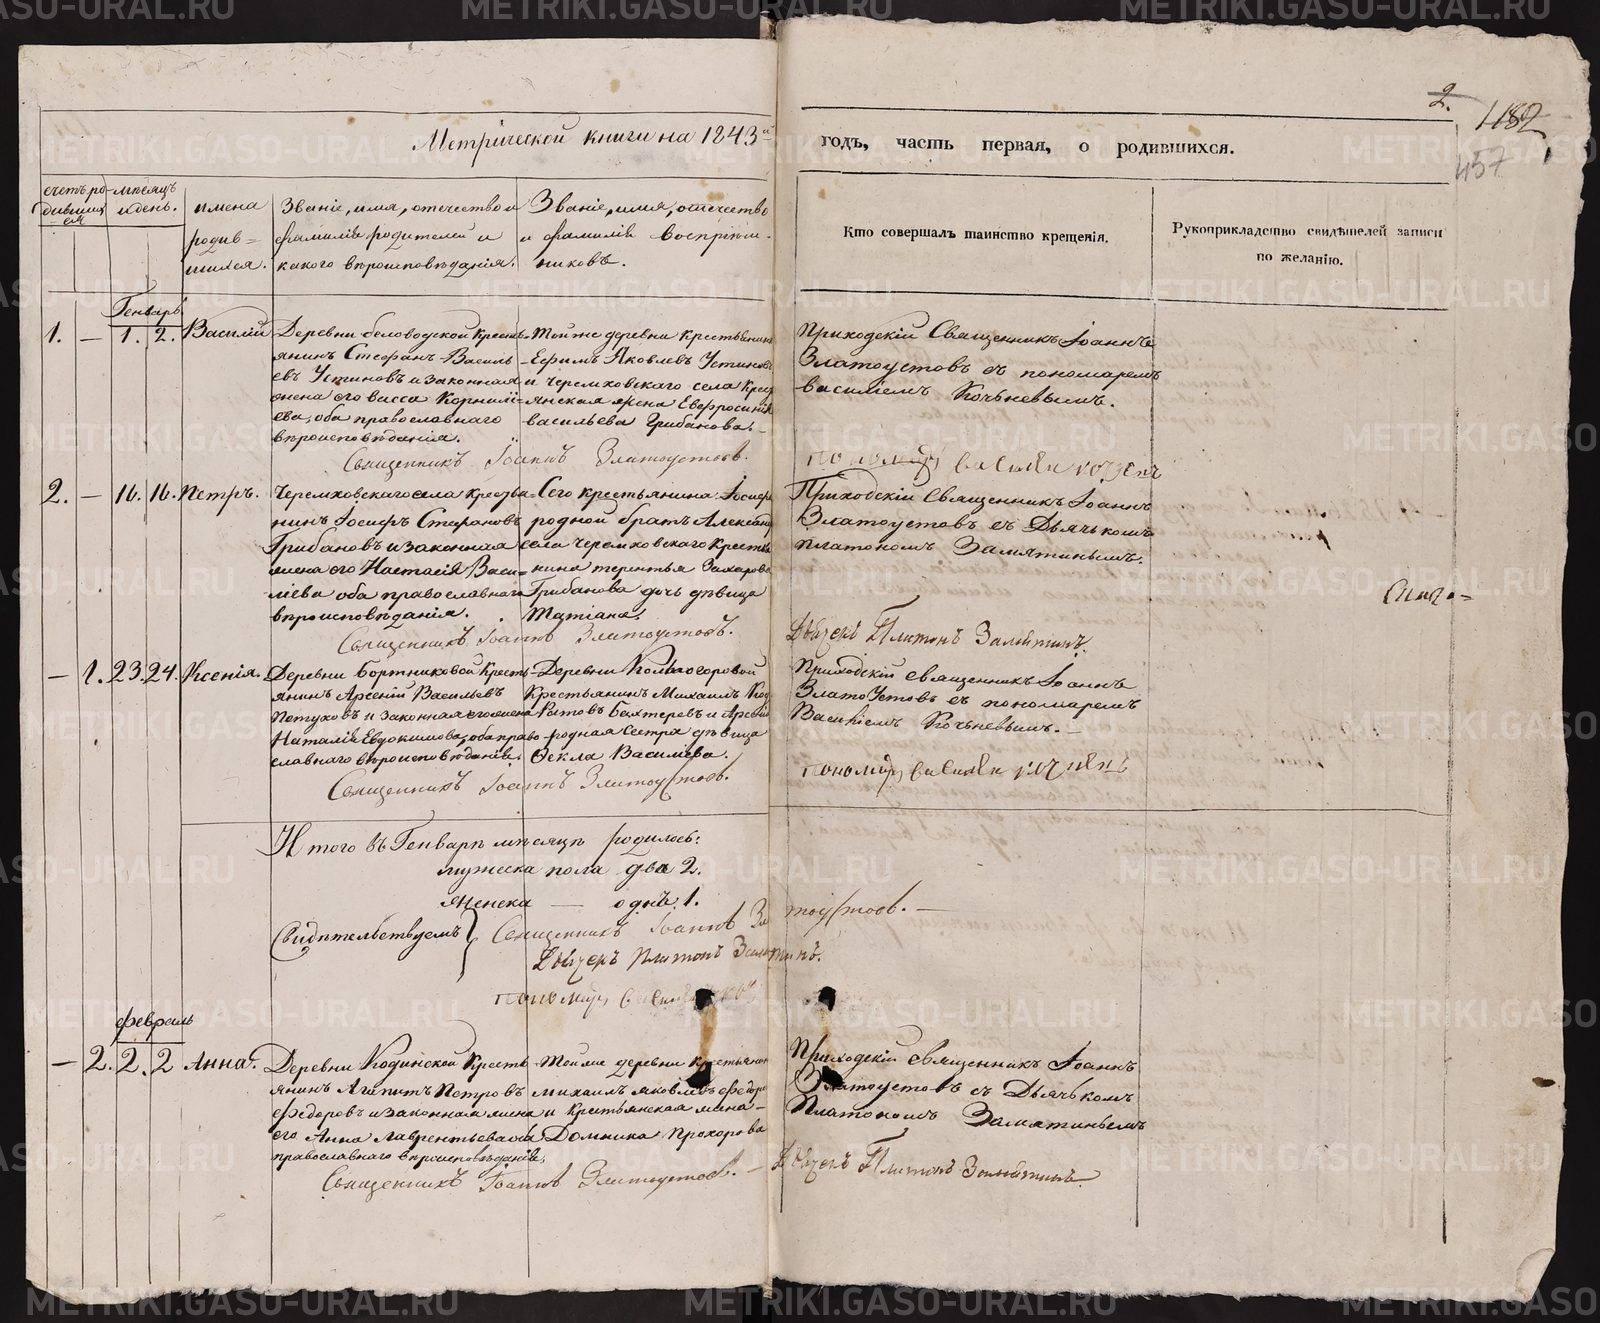 2.
1182
457
Метрической книги на 1843й
годъ, часть первая, о родившихся.
счетъ ро-
дивших
ся
мѣсяцъ
и день.
имена
родив=
шихся.
Званіе, имя, отчество и
фамилія родителей и
какого вѣроисповѣданія.
Званіе, имя, отчество
и фамилія воспріем-
никовъ.
Кто совершалъ таинство крещенія.
Рукоприкладство свидѣтелей записи
по желанію.
Генварь
1. — 1. 2. Василій
Деревни беловодской Кресть-
янинъ Стефанъ Василь
евъ Устиновъ и законная
жена его Васса Корнилі=
ева, оба православнаго
вѣроисповѣданія.
Тойже деревни крестьянинъ
Ефимъ Яковлевъ Устиновъ
и Черемховскаго села Крес
янская жена Евфросинія
васильева Грибанова.
Приходскій Священникъ Іоаннъ
Златоустовъ съ пономаремъ
василіемъ Кочьневымъ.
Священникъ Іоаннъ Златоустовъ.
пономарь василій
2. — 16. 16. Петръ.
Черемховскаго села крестья=
нинъ Іосифъ Стефановъ
Грибановъ и законная
жена его Настасія Васи=
ліева оба православнаго
вѣроисповѣданія.
Сего крестьянина Іосифа
родной братъ Александръ
села Черемховскаго Кресть
нина терентья Захарова
Грибанова дочь дѣвица
Татіана.
Приходскій Священникъ Іоаннъ
Златоустовъ съ Дьячькомъ
платономъ Замятинымъ.
Священникъ Іоаннъ Златоустовъ.
Дьячекъ Платонъ Замятинъ.
— 1. 23. 24. Ксенія.
Деревни Бортниковой Кресть-
янинъ Арсеній Васильевъ
Петуховъ и законная его жена
Наталія Евдокимова, оба право
славнаго вѣроисповѣданія.
Деревни Колмогоровой
Крестьянинъ Михаилъ Кон
Бахтеревъ и Арсенія
родная Сестра дѣвица
Ѳекла Василіева.
Приходскій священникъ Іоаннъ
ЗлатоУстовъ съ пономаремъ
Василіемъ Кочьневымъ. —
Священникъ Іоаннъ Златоустовъ.
пономарь василій
Итого въ Генварѣ мѣсяцѣ родилось:
мужеска пола два 2.
женска — однѣ. 1.
Свидѣтельствуемъ Священникъ Іоаннъ Златоустовъ. —
Дьячекъ Платонъ Замятинъ.
пономарь
Февраль
— 2. 2. 2 Анна.
Деревни Кодинской Кресть
янинъ Агапитъ Петровъ
Федоровъ и законная жена
его Анна Лаврентьева оба
православнаго вѣроисповѣданія.
Тойже деревни крестьянин
михаилъ яковлевъ Федоро
и крестьянская жена
Домника Прохорова
Приходскій священникъ Іоаннъ
Златоустовъ съ Дьячькомъ
Платономъ Замятинымъ
Священникъ Іоаннъ Златоустовъ. —
Дьячекъ Платонъ Замятинъ.
METRIKI.GASO-URAL.RU